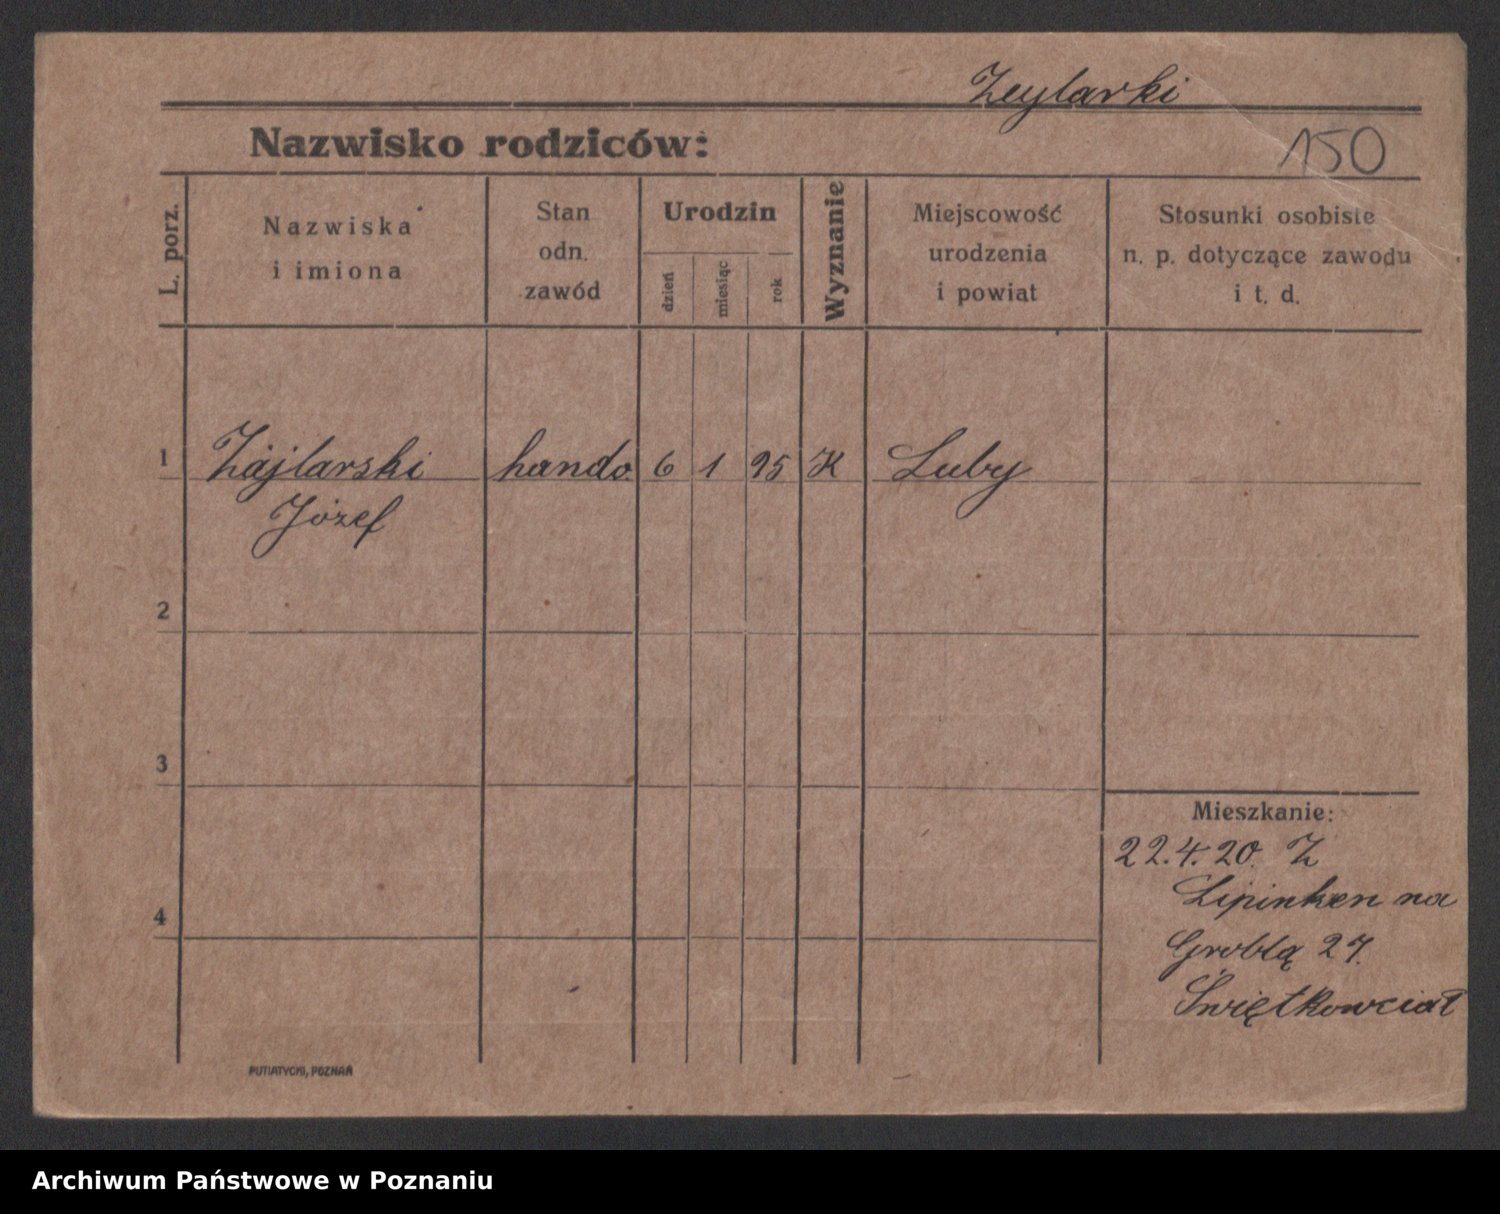 Zeylarki
Nazwisko rodziców:
150
L. porz.
Nazwiska
i imiona
Stan
odn.
zawód
Urodzin
dzień
miesiąc
rok
Wyznanie
Miejscowość
urodzenia
i powiat
Stosunki osobiste
n. p. dotyczące zawodu
i t. d.
1 Zajlarski hando. 6 1 95 K Luby
Józef
2
3
Mieszkanie:
22.4.20. Z
Lipinken na
4
Groblą 27.
PUTIATYCKI, POZNAŃ
Archiwum Państwowe w Poznaniu